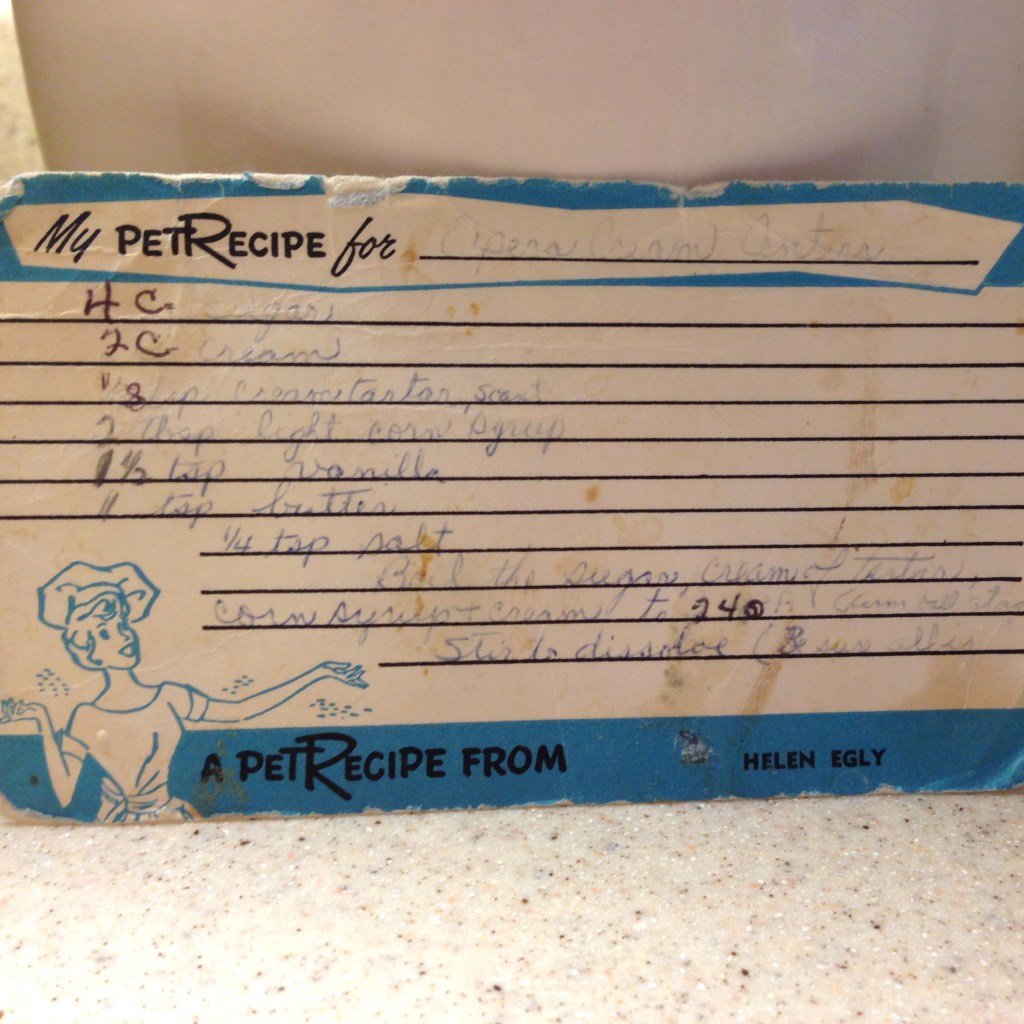 My PETRECIPE for Opera Cream Centers
4 C. sugar
2 C. cream
1/8 tsp cream tartar, scant
2 Tbsp light corn syrup
1 1/2 tsp vanilla
1 tsp butter
1/4 tsp salt
Boil the sugar, cream of tartar,
corn syrup + cream to 240
Stir to dissolve (Be sure all is
A PETRECIPE FROM HELEN EGLY